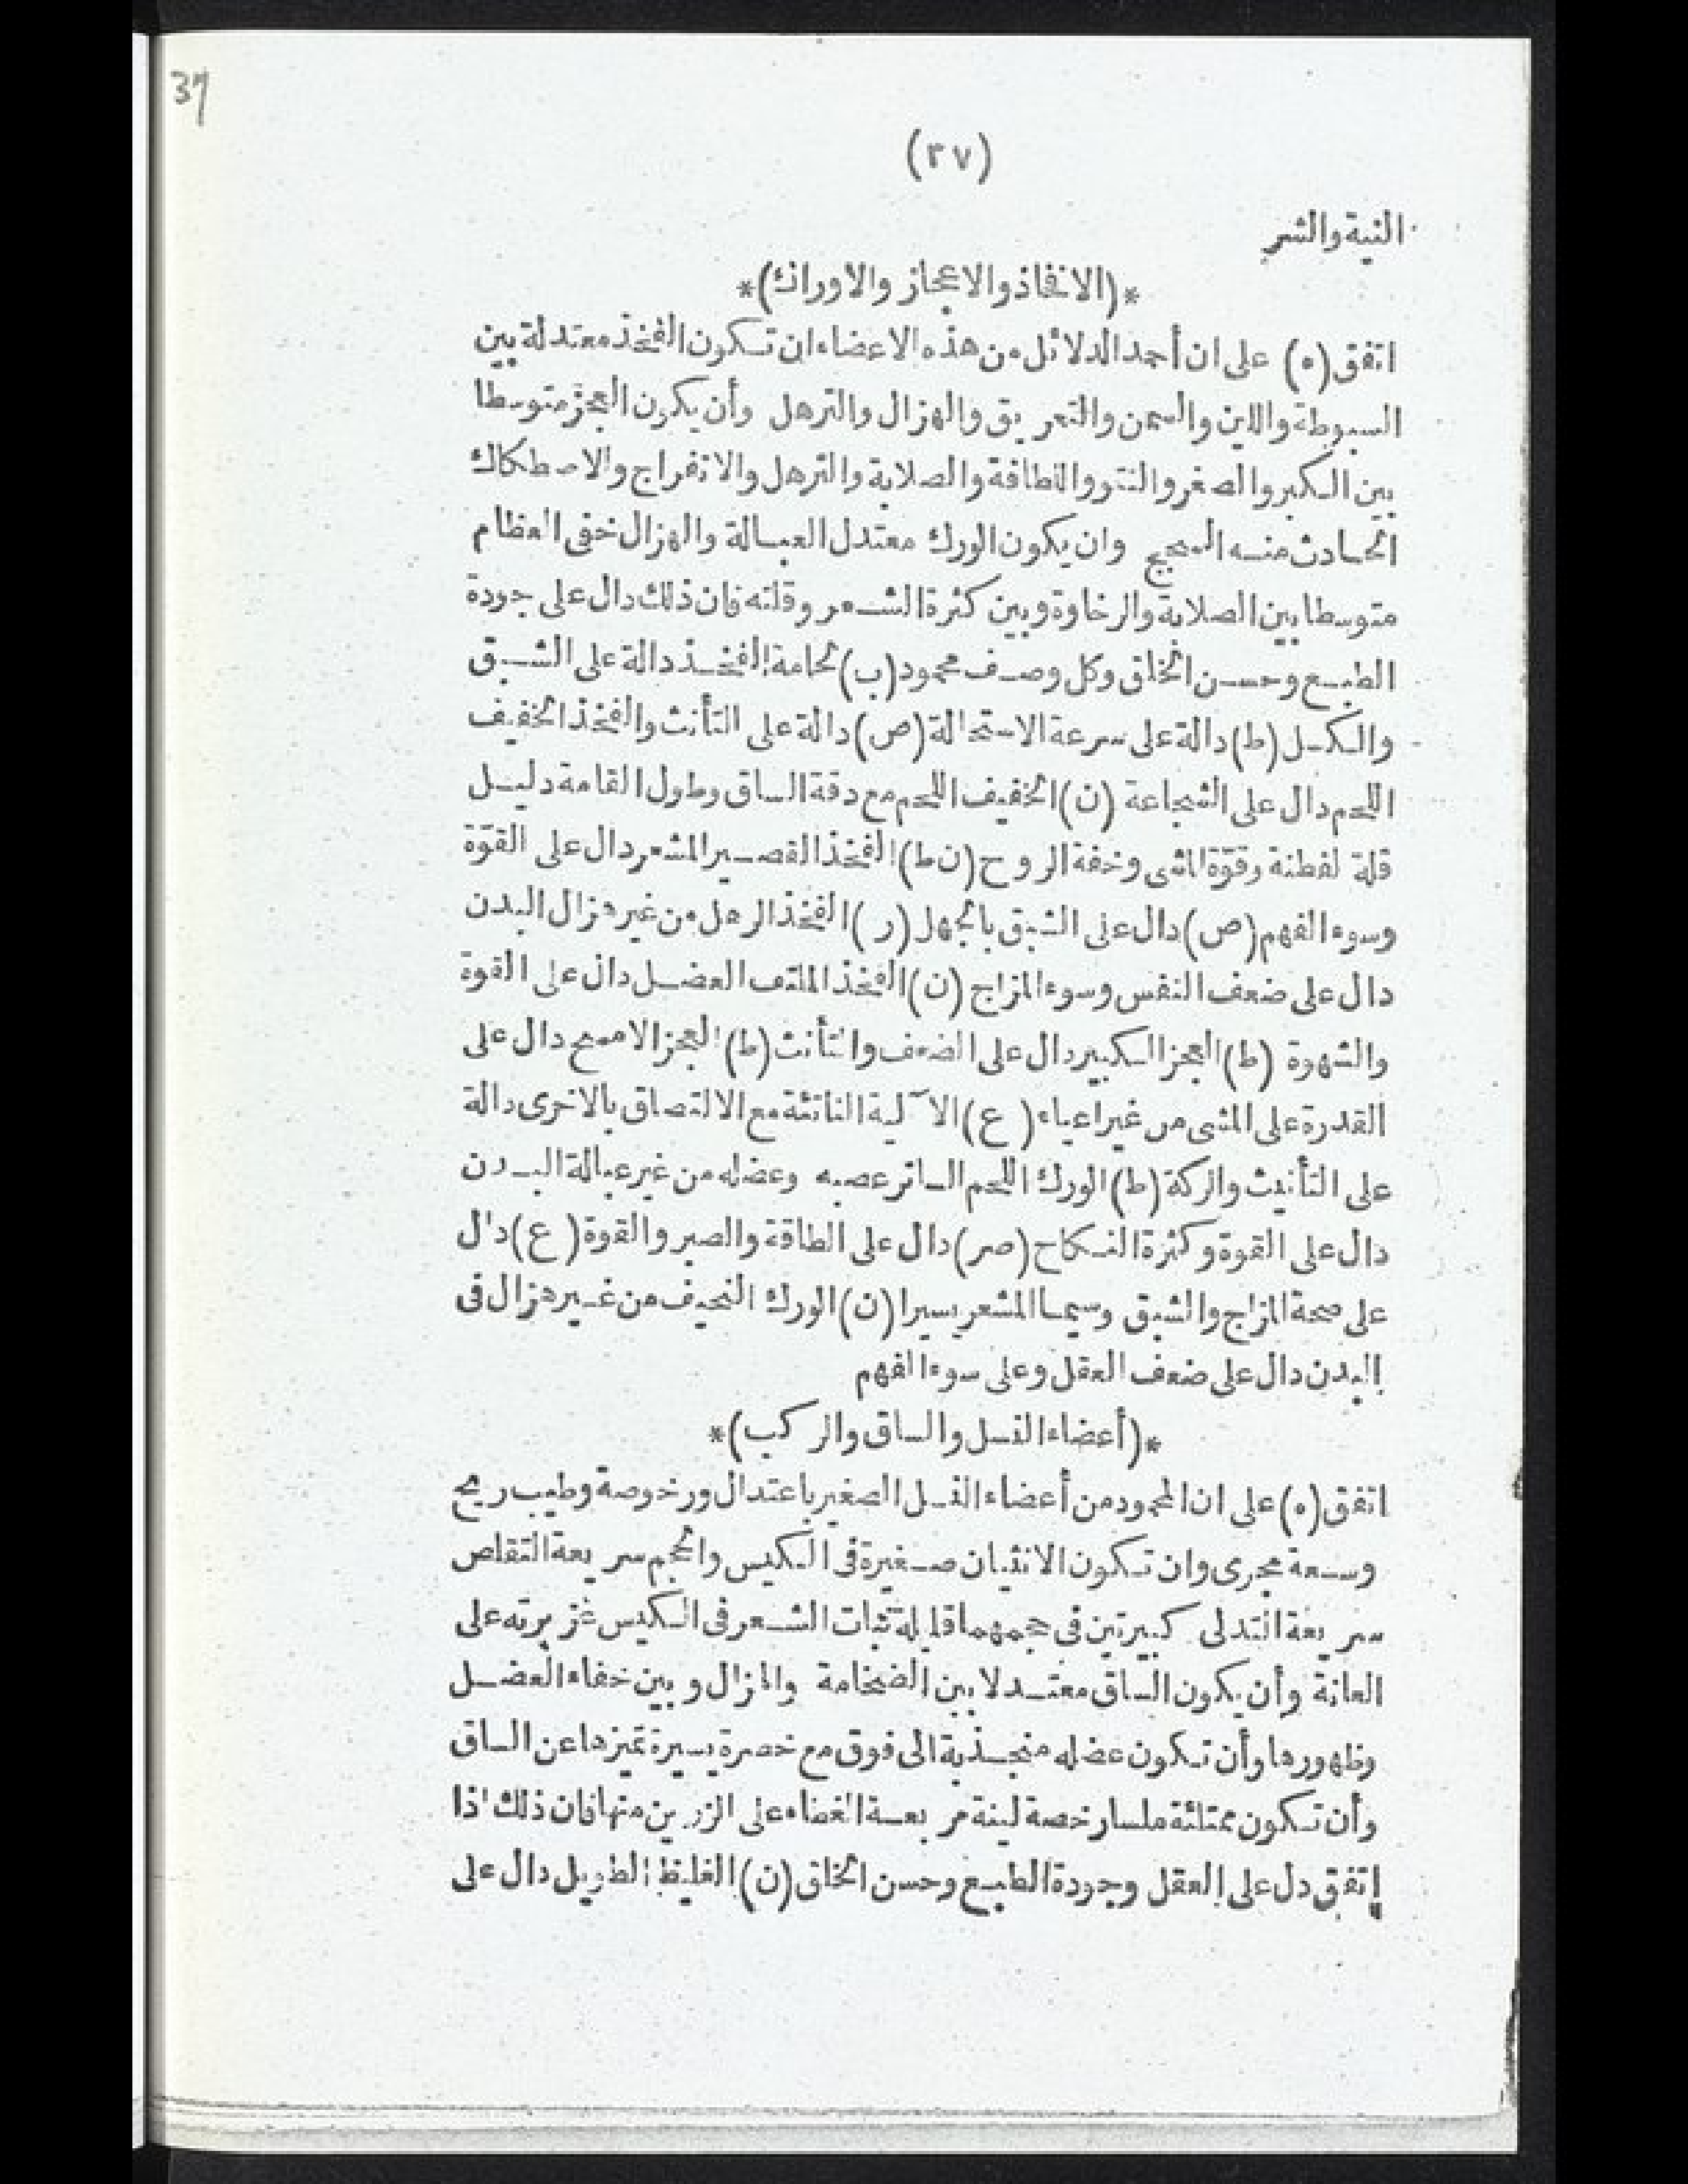 37
(٣٧)
النية والشر
*(الافخاذ والاعجاز والاوراك)*
اتفق (ه) على ان أحمد الدلائل من هذه الاعضاء ان تكون الفخذ معتدلة بين
السبوطة واللين والسمن والتعريق والهزال والترهل وأن يكون العجز متوسطا
بين الكبر والصغر والنتو واللطافة والصلابة والترهل والانفراج والاصطكاك
الحادث منه السحج وان يكون الورك معتدل العبالة والهزال خفى العظام
متوسطا بين الصلابة والرخاوة وبين كثرة الشعر وقلته فان ذلك دال على جودة
الطبع وحسن الخلق وكل وصف محمود (ب) لحامة الفخذ دالة على الشبق
والكسل (ط) دالة على سرعة الاستحالة (ص) دالة على التأنث والفخذ الخفيف
اللحم دال على الشجاعة (ن) الخفيف اللحم مع دقة الساق وطول القامة دليل
قلة لفطنة وقوّة المشى وخفة الروح (ن ط) الفخذ القصير المشعر دال على القوّة
وسوء الفهم (ص) دال على الشبق بالجهل (ر) الفخذ الرهل من غير هزال البدن
دال على ضعف النفس وسوء المزاج (ن) الفخذ الملتف العضل دال على القوة
والشهوة (ط) العجز الكبير دال على الضعف والتأنث (ط) العجز الامسح دال على
القدرة على المشى من غير اعياء (ع) الآلية الناتئة مع الالتصاق بالاخرى دالة
على التأنيث والركة (ط) الورك اللحم الساتر عصبه وعضله من غير عبالة البدن
دال على القوة وكثرة النكاح (صر) دال على الطاقة والصبر والقوة (ع) دال
على صحة المزاج والشبق وسيما المشعر يسيرا (ن) الورك النحيف من غير هزال فى
البدن دال على ضعف العقل وعلى سوء الفهم
*(أعضاء النسل والساق والركب)*
اتفق (ه) على ان المحمود من أعضاء النسل الصغير باعتدال ورخوصة وطيب ريح
وسعة مجرى وان تكون الانثيان صغيرة فى الكيس والحجم سريعة التقلص
سريعة التدلى كبيرتين فى حجمهما قليلة نبات الشعر فى الكيس غزيرته على
العانة وأن يكون الساق معتدلا بين الضخامة والهزال وبين خفاء العضل
وظهورها وأن تكون عضله منجذبة الى فوق مع خصرة يسيرة تميزها عن الساق
وأن تكون ممتلئة ملسا رخصة لينة مربعة الغضاء على الزرين منها فان ذلك اذا
اتفق دل على العقل وجودة الطبع وحسن الخلق (ن) الغليظ الطويل دال على